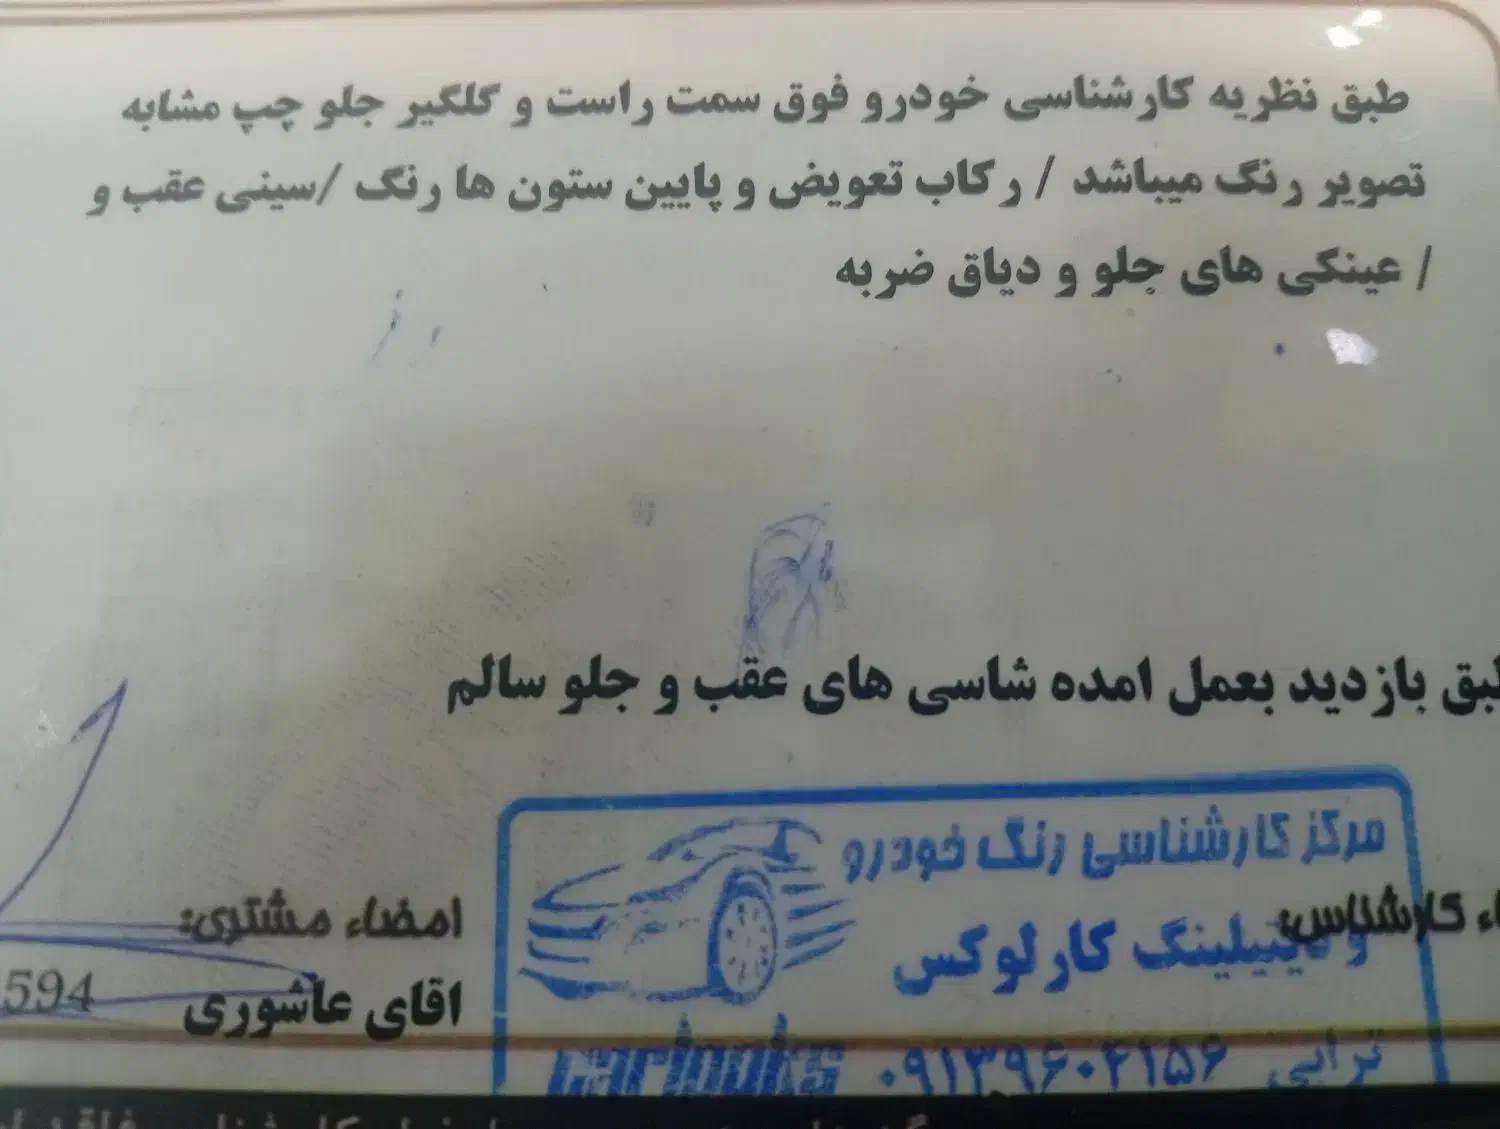 طبق نظریه کارشناسی خودرو فوق سمت راست و گلگیر جلو چپ مشابه
تصویر رنگ میباشد / رکاب تعویض و پایین ستون ها رنگ /سینی عقب و
/ عینکی های جلو و دیاق ضربه
بازدید بعمل امده شاسی های عقب و جلو سالم
مرکز کارشناسی رنگ خودرو
کارشناس:
و دیتیلینگ کارلوکس
carlooks
ترابی ۰۹۱۳۹۶۰۴۱۵۶
امضاء مشتری:
اقای عاشوری
594